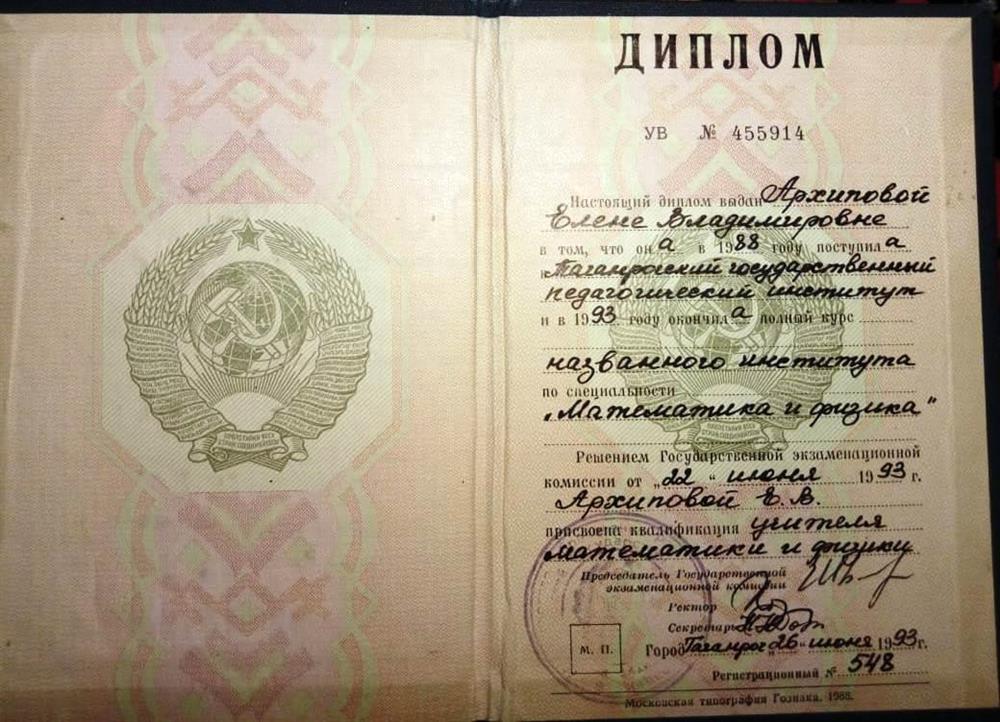 ДИПЛОМ
УВ № 455914
Настоящий диплом выдан Архиповой
Елене Владимировне
в том, что она в 1988 году поступила
в Таганрогский государственный
педагогический институт
и в 1993 году окончила полный курс
названного института
по специальности
„Математика и физика"
Решением Государственной экзаменационной
комиссии от „22" июня 1993 г.
Архиповой Е. В.
присвоена квалификация учителя
математики и физики
Председатель Государственной
экзаменационной комиссии
Ректор
Секретарь
М. П.
Город Таганрог „26" июня 1993 г.
Регистрационный № 548
Московская типография Гознака. 1988.
ПРОЛЕТАРИИ ВСЕХ
СТРАН, СОЕДИНЯЙТЕСЬ!